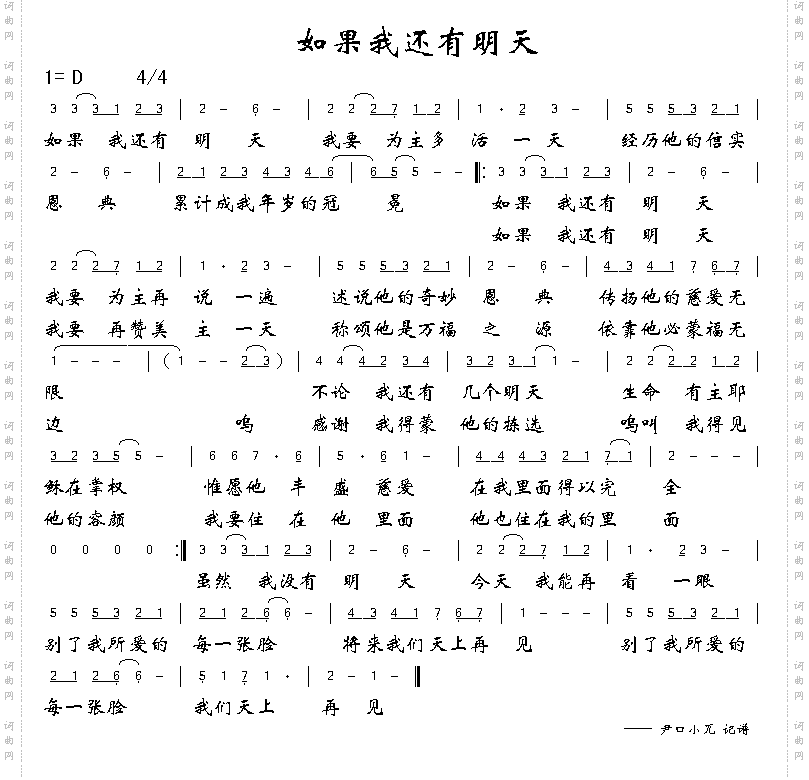 如果我还有明天
1= D 4/4
3 3 3 1 2 3 | 2 - 6 - | 2 2 2 7 1 2 | 1 · 2 3 - | 5 5 5 3 2 1 |
如果 我还有 明 天 我要 为主多 活 一 天 经历他的信实
2 - 6 - | 2 1 2 3 4 3 4 6 | 6 5 5 - - ‖: 3 3 3 1 2 3 | 2 - 6 - |
恩 典 累计成我年岁的冠 冕 如果 我还有 明 天
如果 我还有 明 天
2 2 2 7 1 2 | 1 · 2 3 - | 5 5 5 3 2 1 | 2 - 6 - | 4 3 4 1 7 6 7 |
我要 为主再 说 一 遍 述说他的奇妙 恩 典 传扬他的慈爱无
我要 再赞美 主 一 天 称颂他是万福 之 源 依靠他必蒙福无
1 - - - | ( 1 - - 2 3 ) | 4 4 4 2 3 4 | 3 2 3 1 1 - | 2 2 2 2 1 2 |
限 不论 我还有 几个明天 生命 有主耶
边 呜 感谢 我得蒙 他的拣选 呜叫 我得见
3 2 3 5 5 - | 6 6 7 · 6 | 5 · 6 1 - | 4 4 4 3 2 1 7 1 | 2 - - - |
稣在掌权 惟愿他 丰 盛 慈爱 在我里面得以完 全
他的容颜 我要住 在 他 里面 他也住在我的里 面
0 0 0 0 :‖ 3 3 3 1 2 3 | 2 - 6 - | 2 2 2 7 1 2 | 1 · 2 3 - |
虽然 我没有 明 天 今天 我能再 看 一眼
5 5 5 3 2 1 | 2 1 2 6 6 - | 4 3 4 1 7 6 7 | 1 - - - | 5 5 5 3 2 1 |
别了我所爱的 每一张脸 将来我们天上再 见 别了我所爱的
2 1 2 6 6 - | 5 1 7 1 · | 2 - 1 - ‖
每一张脸 我们天上 再 见
—— 尹口小兀 记谱
词曲网